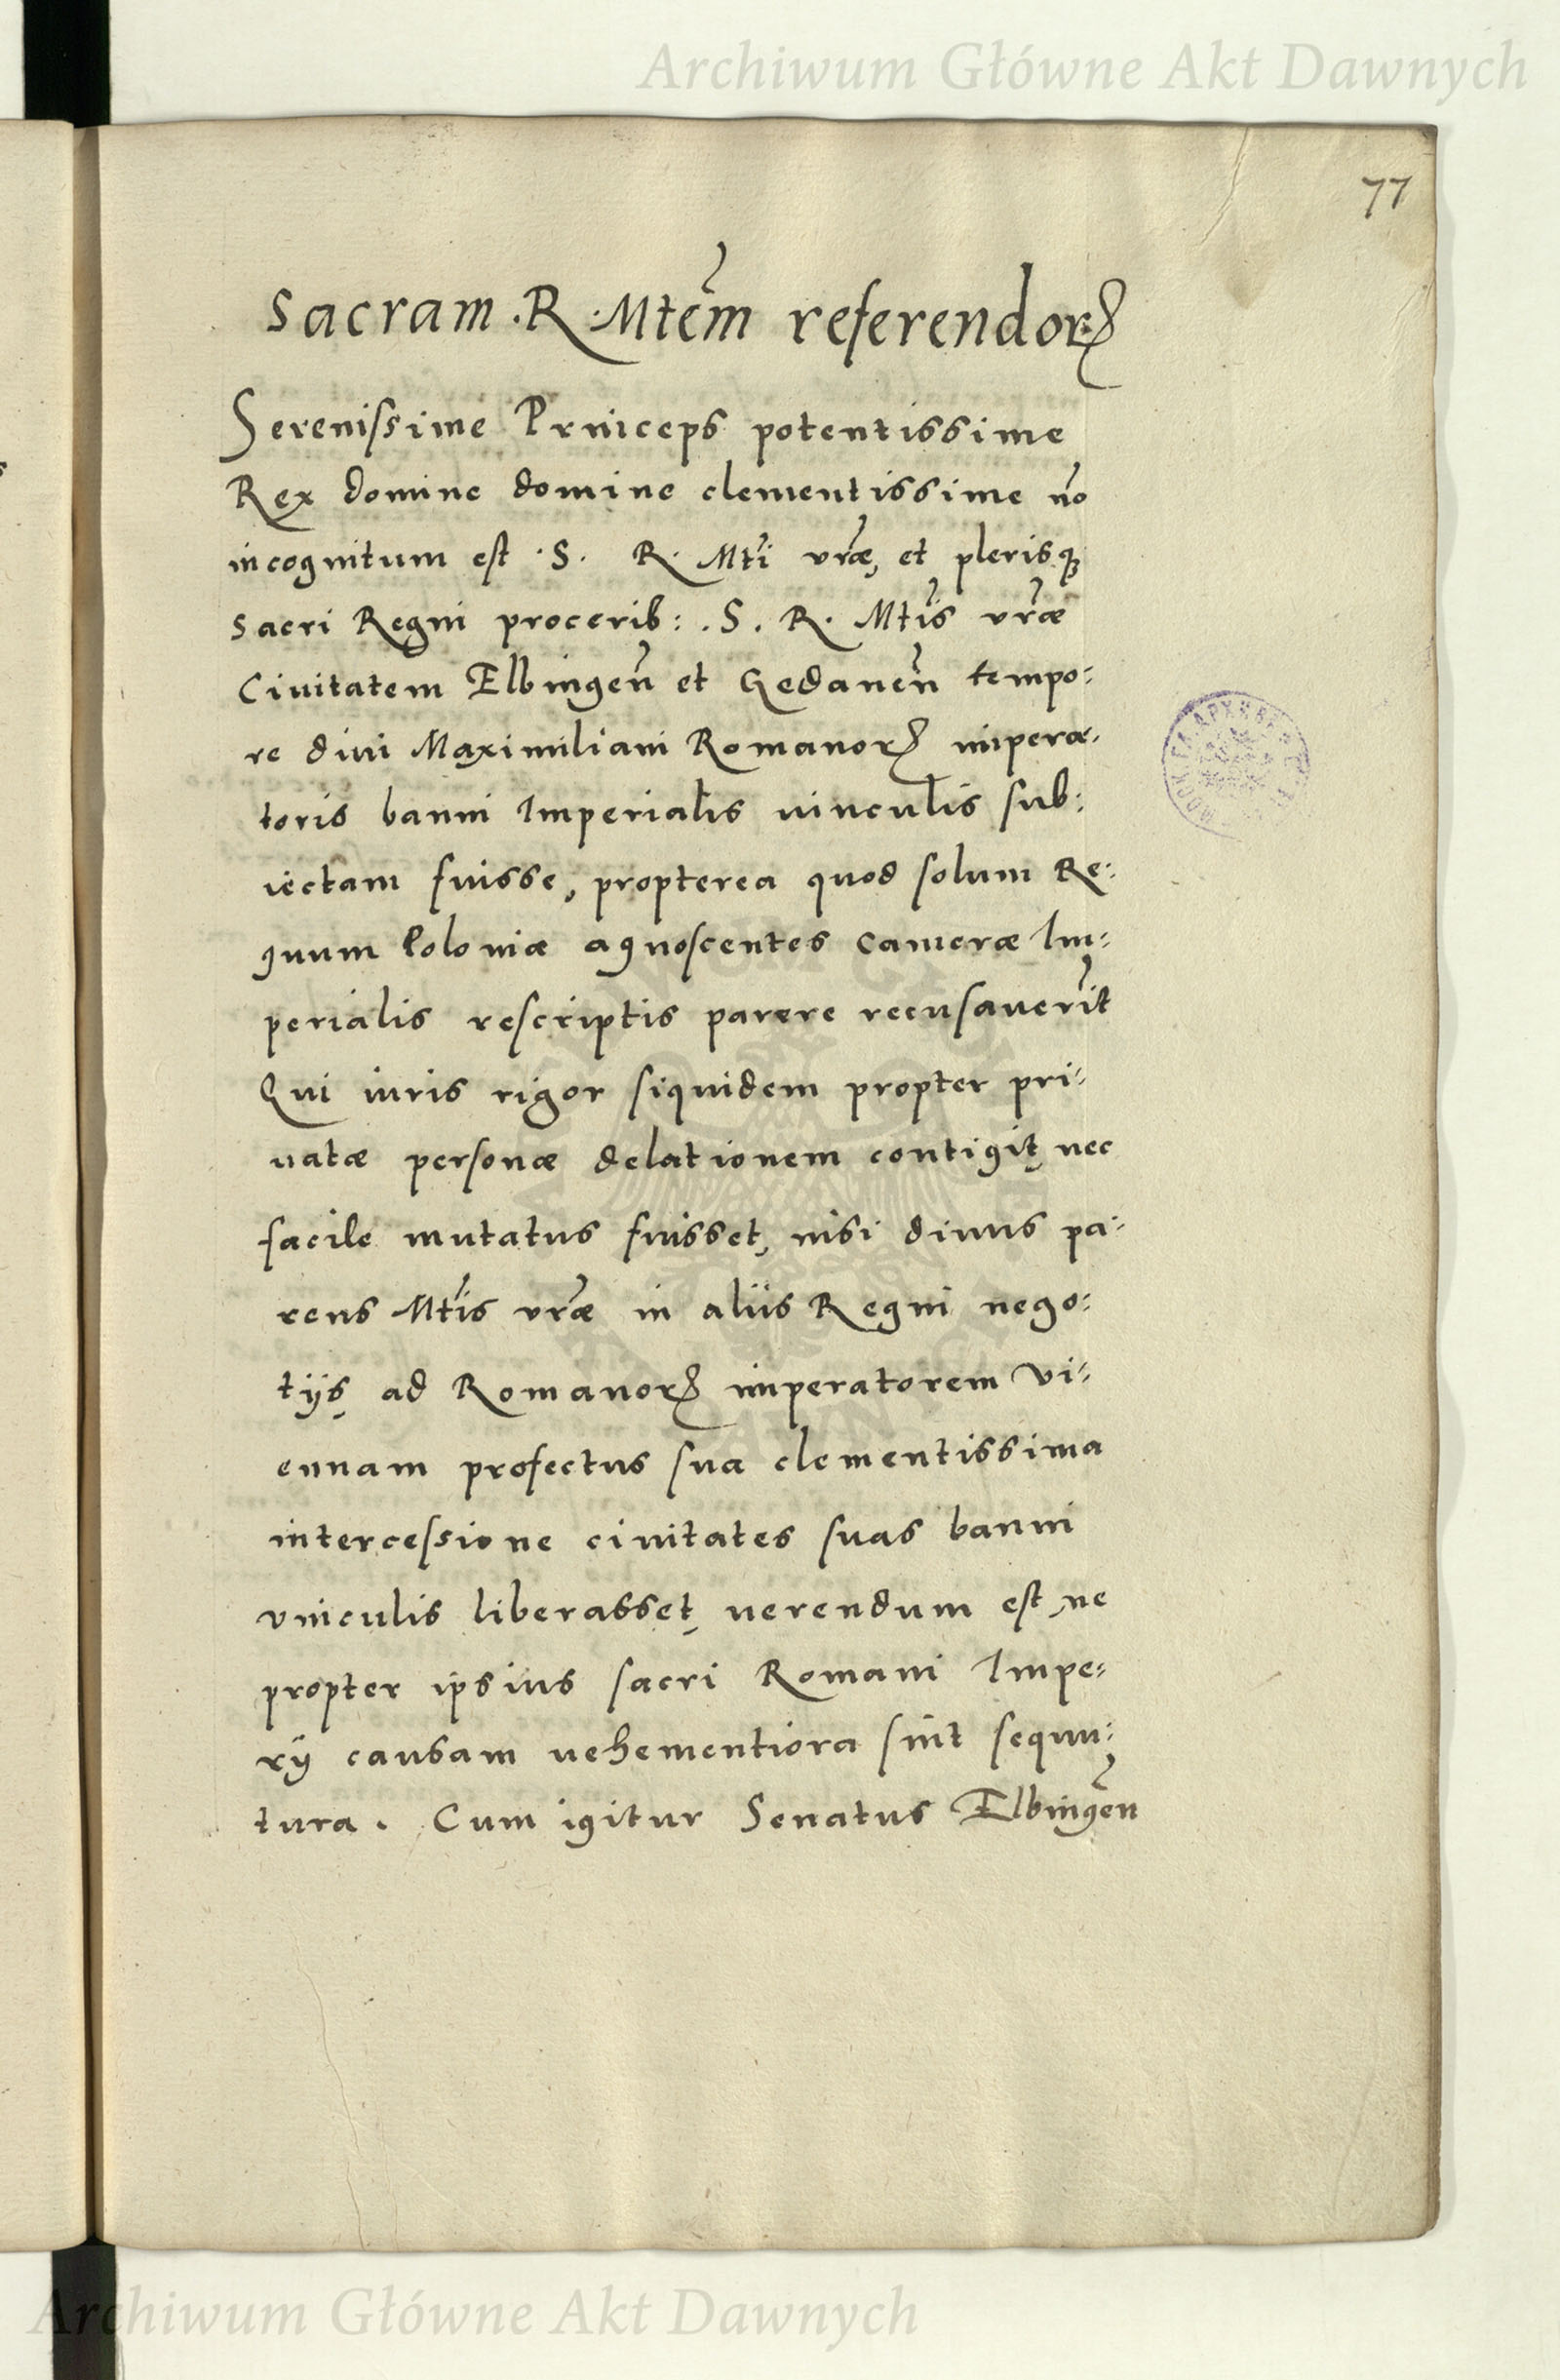 Archiwum Główne Akt Dawnych
77
Sacram .R. Mtẽm referendorꝝ
Serenissime Princeps potentissime
Rex domine domine clementissime nõ
incognitum est .S. R. Mtĩ vr̃æ, et plerisqꝫ
sacri Regni procerib: .S. R. Mtĩs vr̃æ
Ciuitatem Elbingeñ et Gedaneñ tempo:
re diui Maximiliani Romanorꝝ impera:
toris banni Imperialis uinculis sub:
iectam fuisse, propterea quod solum Re:
gnum Poloniæ agnoscentes Cameræ Im:
perialis rescriptis parere recusauerĩt
Qui iuris rigor siquidem propter pri:
uatæ personæ delationem contigit, nec
facile mutatus fuisset, nisi diuus pa:
rens Mtĩs vr̃æ in aliis Regni nego:
tijs, ad Romanorꝝ imperatorem Vi:
ennam profectus sua clementissima
intercessione ciuitates suas banni
vinculis liberasset, uerendum est, ne
propter ipsius sacri Romani Impe:
rij causam uehementiora sint sequu:
tura. Cum igitur Senatus Elbingẽn
Archiwum Główne Akt Dawnych